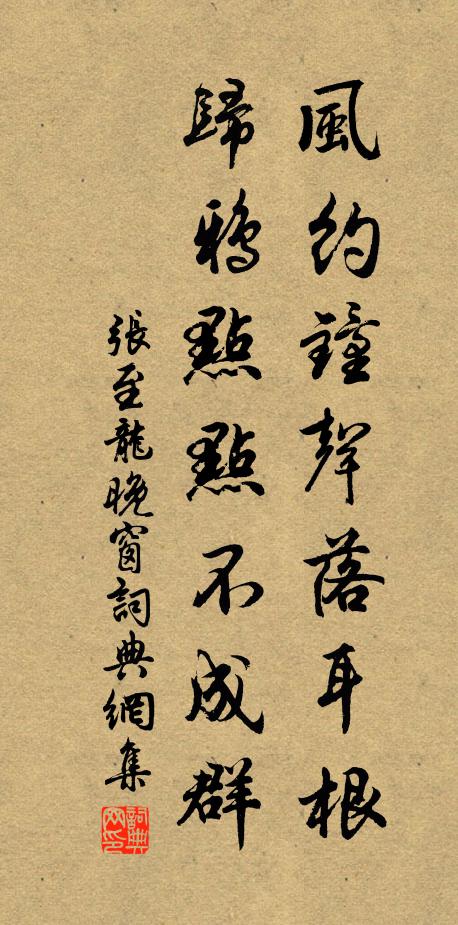 風約鐘聲落耳根
歸鴉點點不成群
張至龍晚窗詞典網集
詞典网印